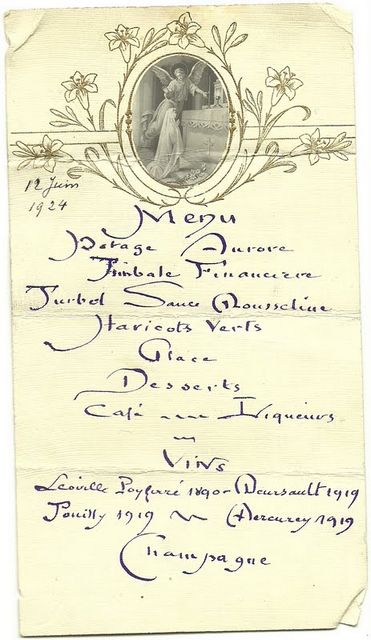 12 Juin
1924
Menu
Potage Aurore
Timbale Financière
Turbot Sauce Mousseline
Haricots Verts
Glace
Desserts
Café ~ Liqueurs
Vins
Léoville Poyferré 1890 - Meursault 1919
Pouilly 1919 ~ Mercurey 1919
Champagne